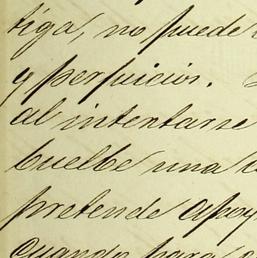 tiga, no puede
y perjuicios.
al intentarse
buelbe una
pretende apoy
cuando para